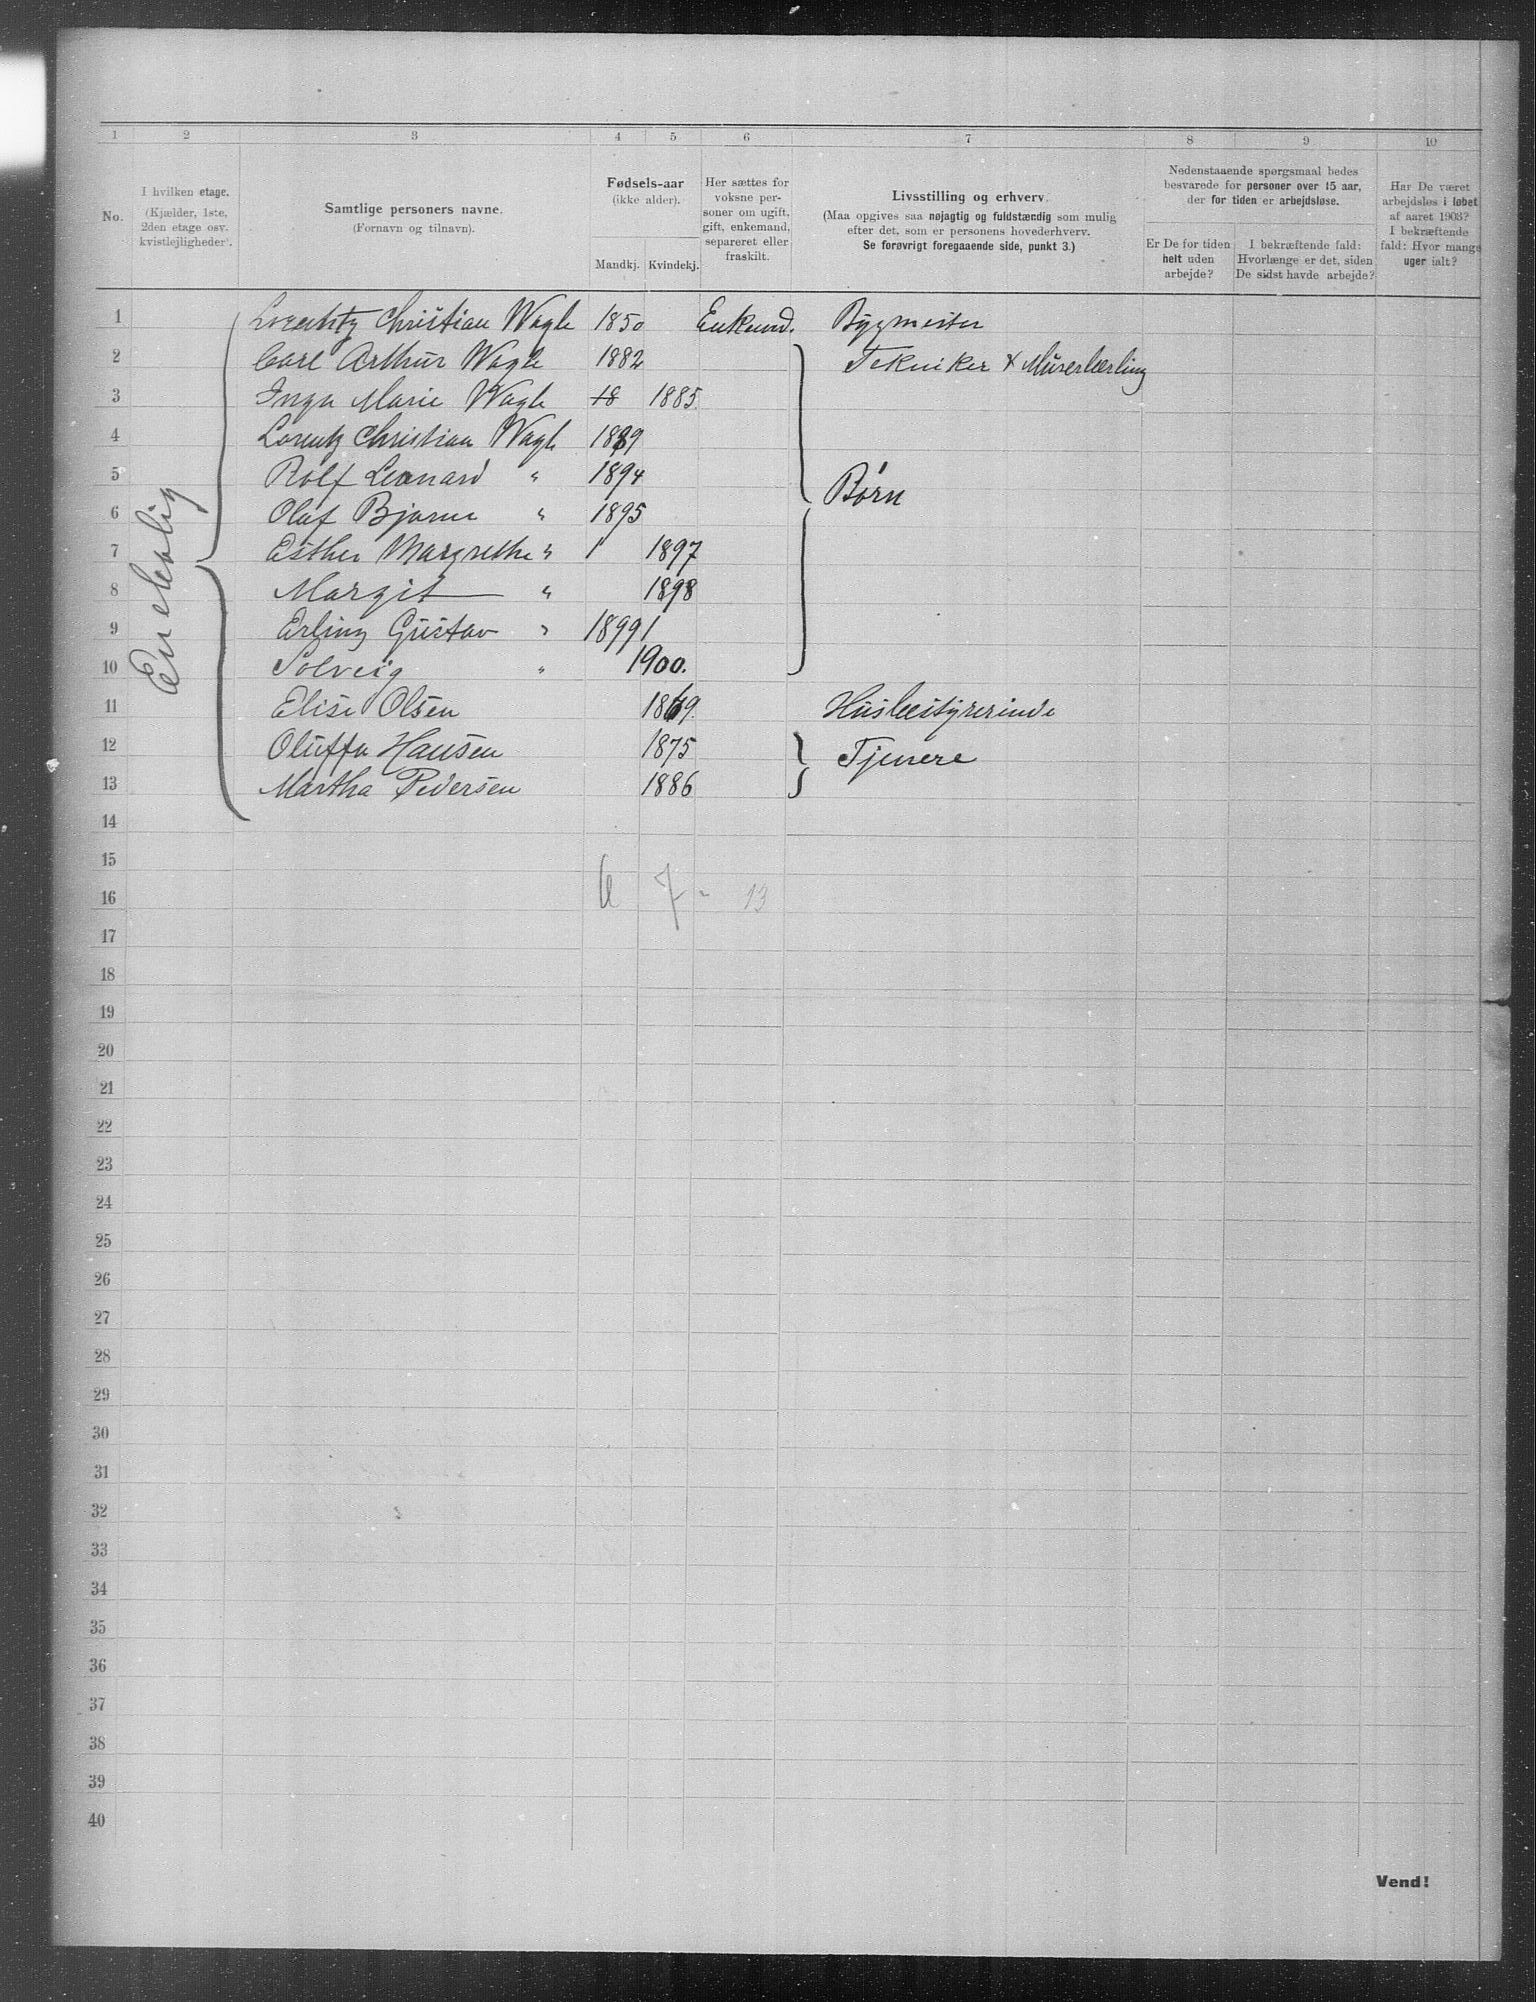 1 2 3 4 5 6 7 8 9 10
No.
I hvilken etage.
(Kjælder, 1ste,
2den etage osv.
kvistlejligheder).
Samtlige personers navne.
(Fornavn og tilnavn).
Fødsels-aar
(ikke alder).
Mandkj. Kvindekj.
Her sættes for
voksne per-
soner om ugift,
gift, enkemand,
separeret eller
fraskilt.
Livsstilling og erhverv.
(Maa opgives saa nøjagtig og fuldstændig som mulig
efter det, som er personens hovederhverv.
Se forøvrigt foregaaende side, punkt 3.)
Nedenstaaende spørgsmaal bedes
besvarede for personer over 15 aar,
der for tiden er arbejdsløse.
Er De for tiden
helt uden
arbejde?
I bekræftende fald:
Hvorlænge er det, siden
De sidst havde arbejde?
Har De været
arbejdsløs i løbet
af aaret 1903?
I bekræftende
fald: Hvor mange
uger ialt?
Enebolig
1 Lorentz Christian Wagle 1850 Enkemd. Bygmester
2 Carl Arthur Wagle 1882 Tekniker & Murerlærling
3 Inga Marie Wagle 18 1885
4 Lorentz Christian Wagle 1889
5 Rolf Leonard " 1894
Børn
6 Olaf Bjarne " 1895
7 Esther Margrethe " 1 1897
8 Margit " 1898
9 Erling Gustav " 1899 1
10 Solveig " 1900.
11 Elise Olsen 1869. Husbestyrerinde
12 Oluffa Hansen 1875 Tjenere
13 Martha Pedersen 1886
14
15
16 6 7 - 13
17
18
19
20
21
22
23
24
25
26
27
28
29
30
31
32
33
34
35
36
37
38
39
40
Vend!